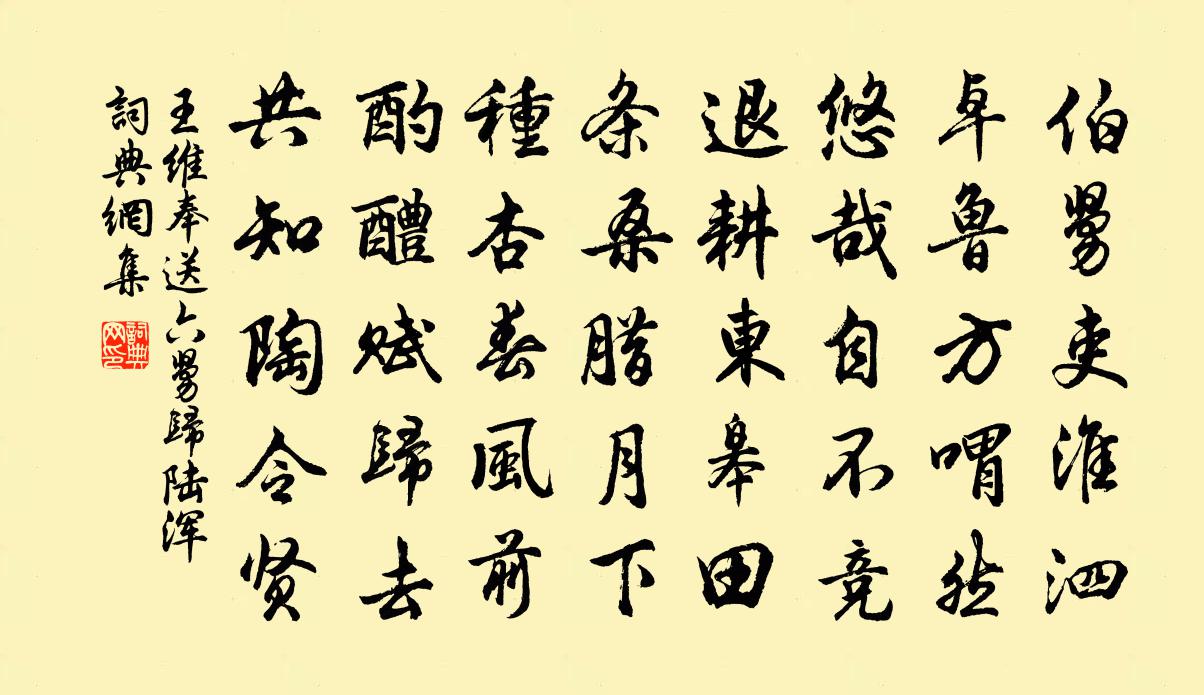 伯舅吏淮泗
卓魯方喟然
悠哉自不竞
退耕東皋田
条桑腊月下
種杏春風前
酌醴赋歸去
共知陶令贤
王維奉送六舅歸陆浑
詞典網集
詞典网印